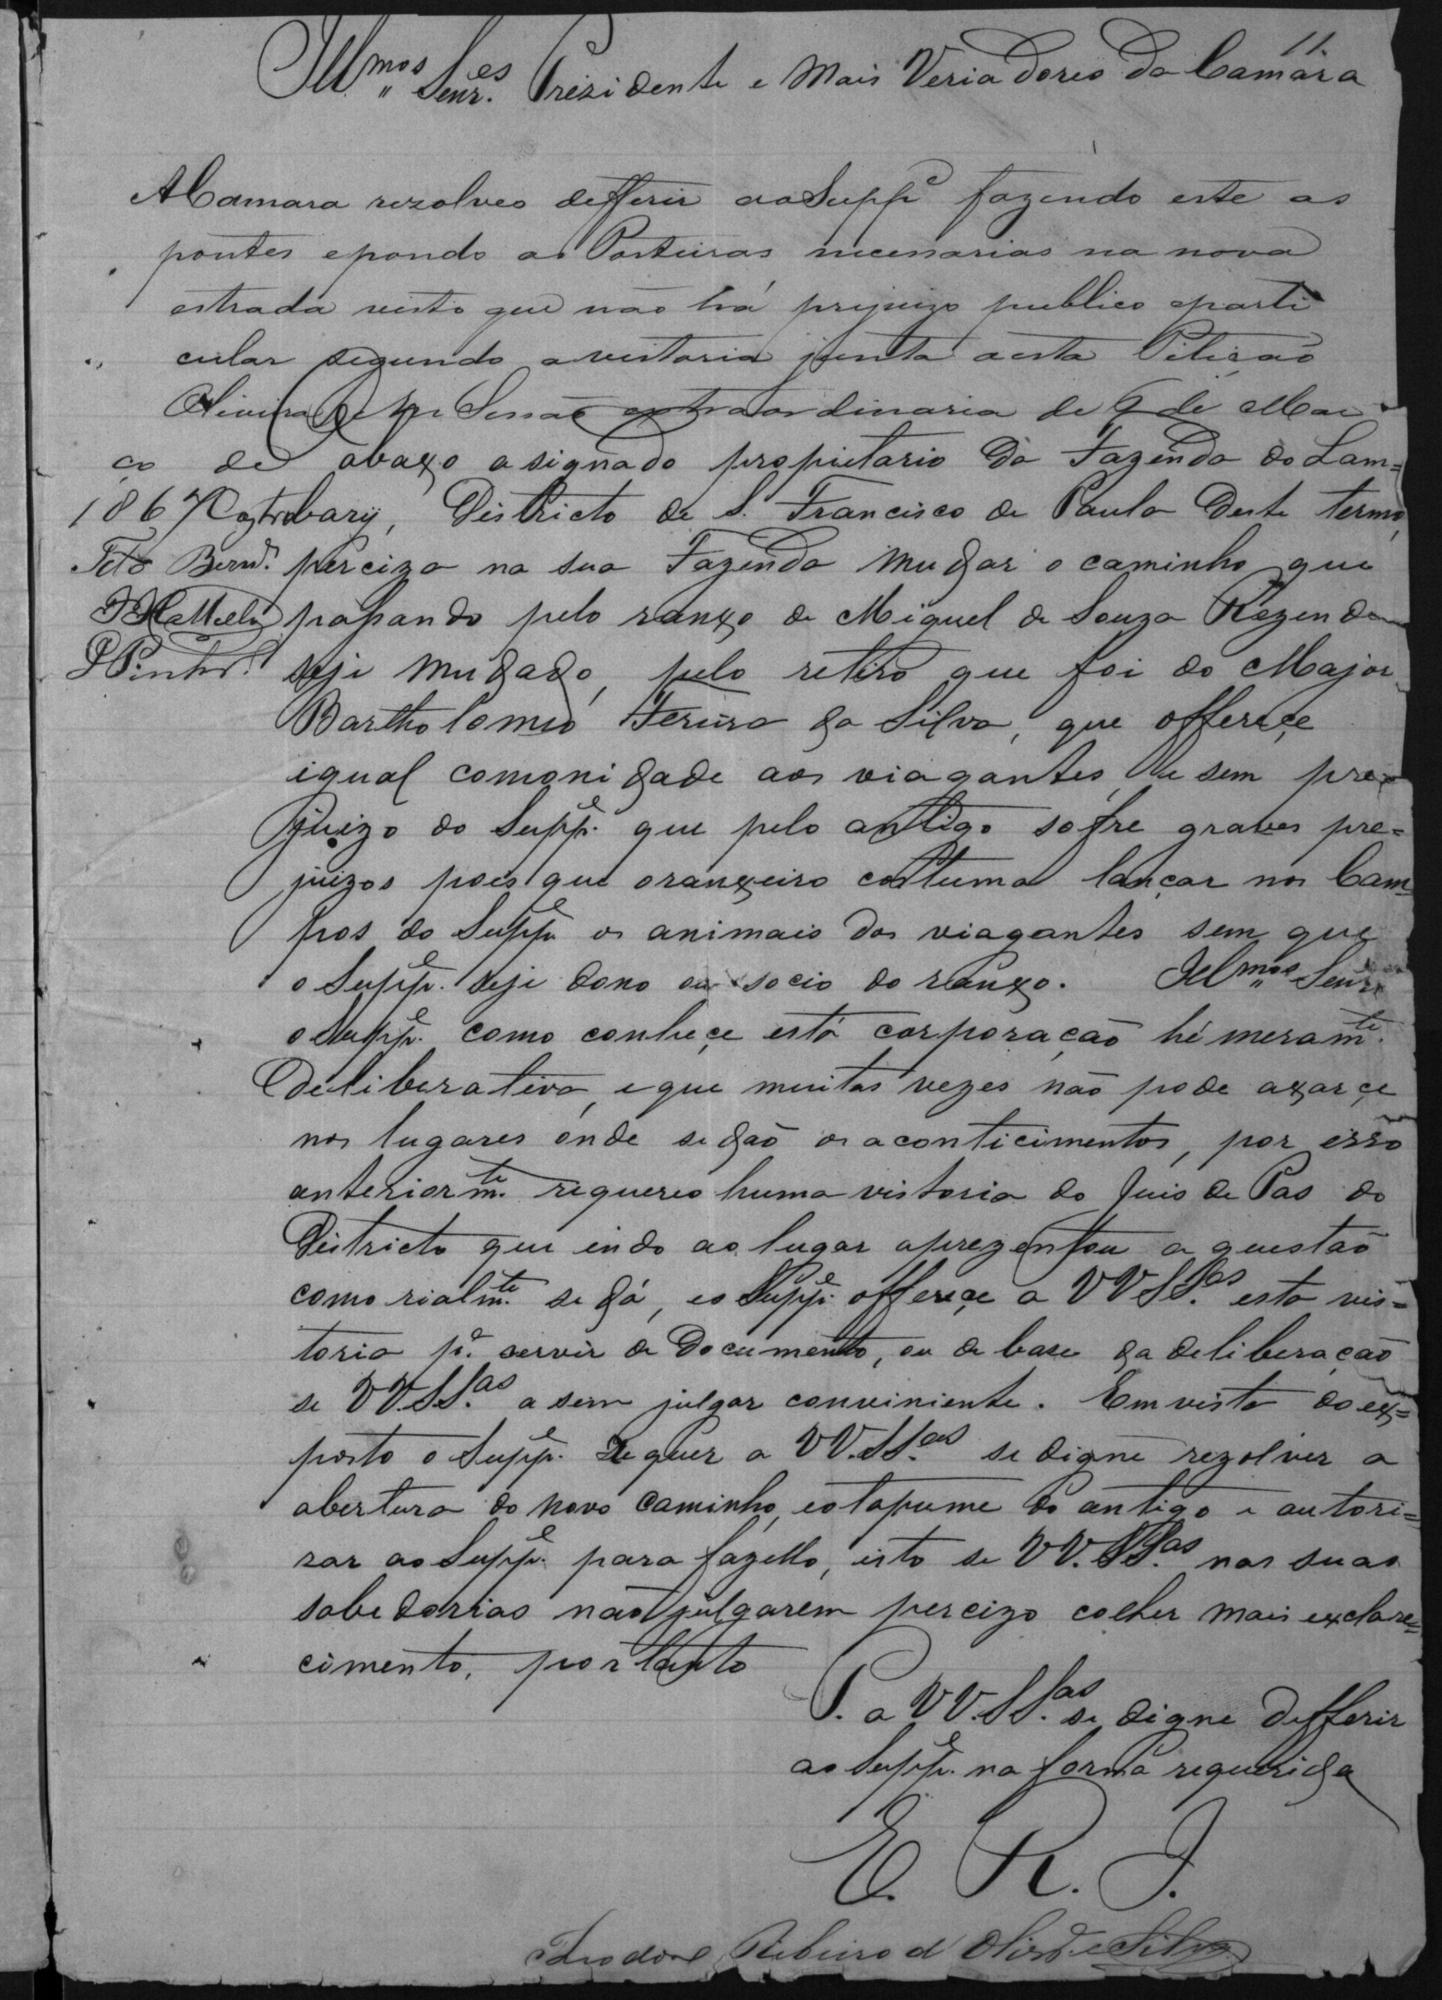 11.
Illmos Senres Prezidente e mais Veriadores da Camara
A Camara rezolveo defferir ao Suppe fazendo este as
pontes e pondo as Porteiras necessarias na nova
estrada visto que não há prejuizo publico e parti
cular segundo a vistoria junta a esta Petição
Oliveira Sessão extraordinaria de 9 de Mar
ço de abaxo asignado propietario da Fazenda do Lam=
1867 Castro bary, Districto de S. Francisco de Paula deste termo,
Teto Berndo perciza na sua Fazenda mudar o caminho que
passando pelo ranxo de Miguel de Souza Rezende
PPinhro seje mudado, pelo retiro que foi do Major
Bartholomeo Fereira da Silva, que offereçe
igual comonidade aos viagantes, e sem pre=
juizo do Suppe. que pelo antigo sofre graves pre=
juizos pois que oranxeiro costuma lançar nos Cam=
pos do Suppe os animais dos viagantes sem que
o Suppe. seje dono ou socio do ranxo. Illmos Senres
o Suppe. como conheçe está corporação hé meramte.
deliberativa, e que muitas vezes não pode axarçe
nos lugares onde se dão os aconticimentos, por isso
anteriormte. requereo huma vistoria do Juis de Pas do
Districto que indo ao lugar aprezentou a questão
como rialmte. se dá, e o Suppe. offereçe a VVSSas esta vis=
toria pa. servir de Documento, ou de base da deliberação
se VVSSas. a sem julgar conviniente. Em vista do ex=
posto o Suppe. Requer a VV.SSas se digne rezolver a
abertura do novo caminho, e o tapume do antigo e autori=
zar ao Suppe. para fazello, isto se VV.SSas nas suas
sabedorias não julgarem percizo colher mais exclare=
cimento, portanto
P. a VV.SSas. se digne defferir
ao Suppe. na forma requerida
E. R. J.
Theodoro Ribeiro d' Olivra e Silva